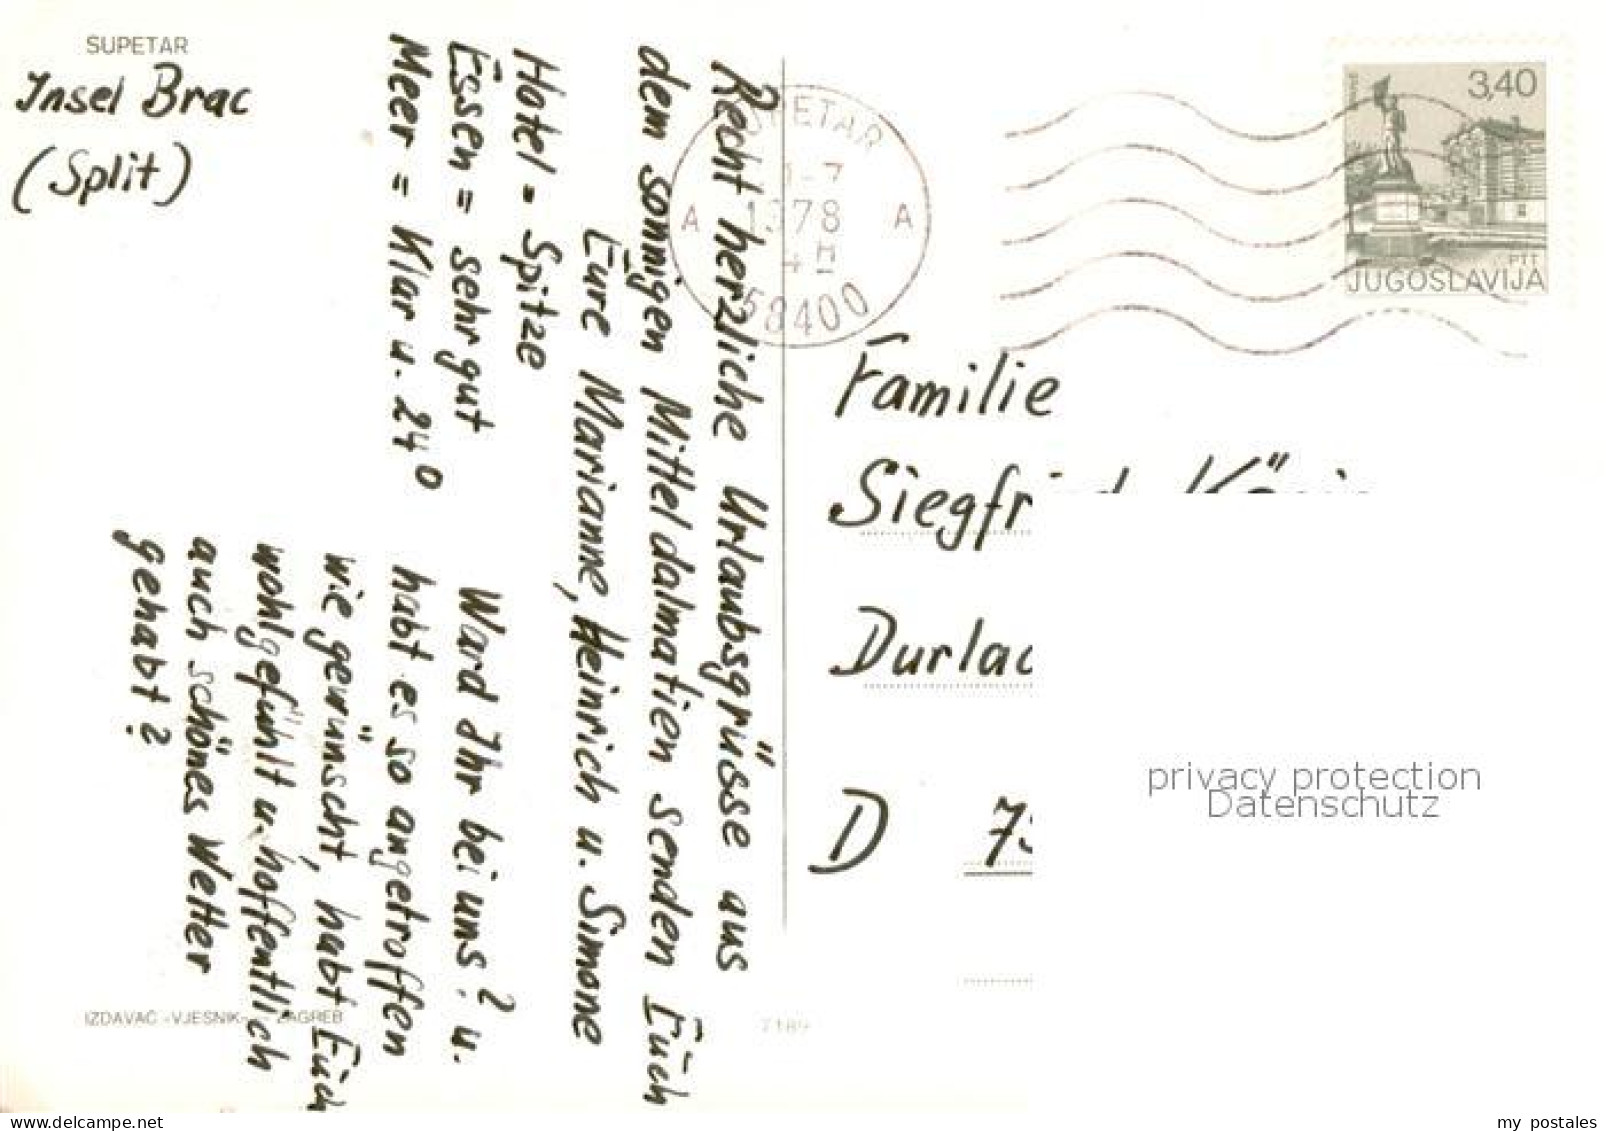 SUPETAR
Insel Brac
(Split)
Recht herzliche Urlaubsgrüsse aus
dem sonnigen Mitteldalmatien senden Euch
Eure Marianne, Heinrich u. Simone
Hotel = Spitze
Essen = sehr gut
Meer = Klar u. 24°
Ward Ihr bei uns? u.
habt es so angetroffen
wie gewünscht, habt Euch
wohlgefühlt u. hoffentlich
auch schönes Wetter
gehabt?
IZDAVAČ «VJESNIK» - ZAGREB
7189
SUPETAR
-7
1978
4H
A A
58400
3,40
PTT
JUGOSLAVIJA
Familie
Durlac
D 73
privacy protection
Datenschutz
www.delcampe.net
my_postales